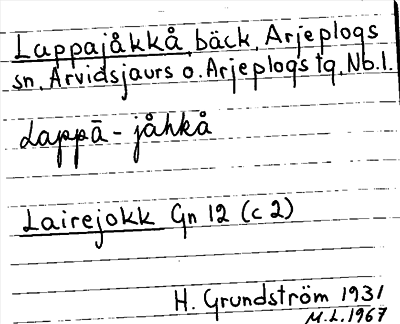 Lappajåkkå, bäck, Arjeplogs
sn, Arvidsjaurs o. Arjeplogs tg, Nb.l.
Lappā-jåhkå
Lairejokk Gn 12 (c 2)
H. Grundström 1931
M.L. 1967